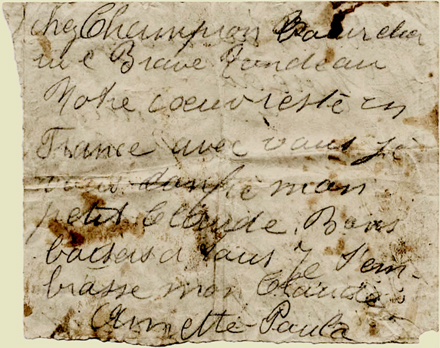 chez Champion Bourrelier
rue Brave Rondeau
Notre coeur reste en
France avec vous je
vous confie mon
petit Claude. Bons
baisers à tous Je l'em-
brasse mon Claude
Annette-Paula